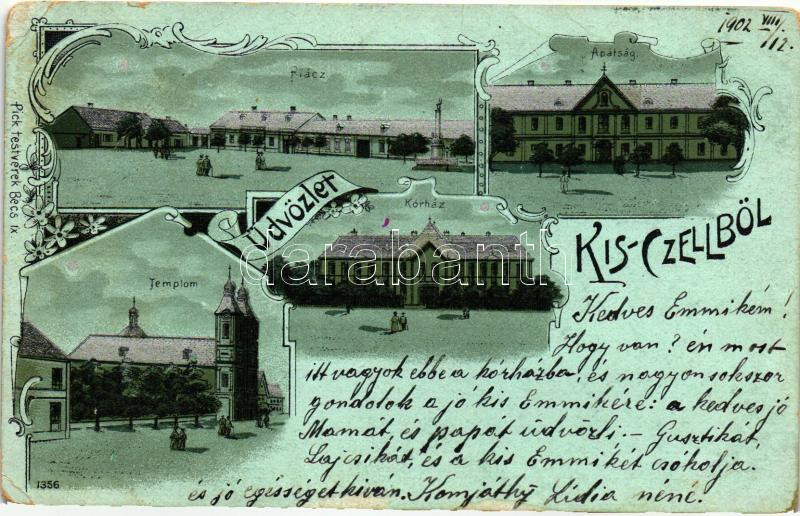 1902 VIII/12.
Piácz
Apátság.
Pick testvérek Bécs IX
Üdvözlet
Kórház
KIS-CZELLBÖL
Templom
darabanth
Kedves Emmikém!
Hogy van? én most
itt vagyok ebbe a kórházba, és nagyon sokszor
gondolok a jó kis Emmikére: a kedves jó
Mamát, és papát üdvözli. – Gusztikát,
Lajcsikát, és a kis Emmikét csókolja.
és jó egésséget kiván. Komjáthy Lidia néne.
1356